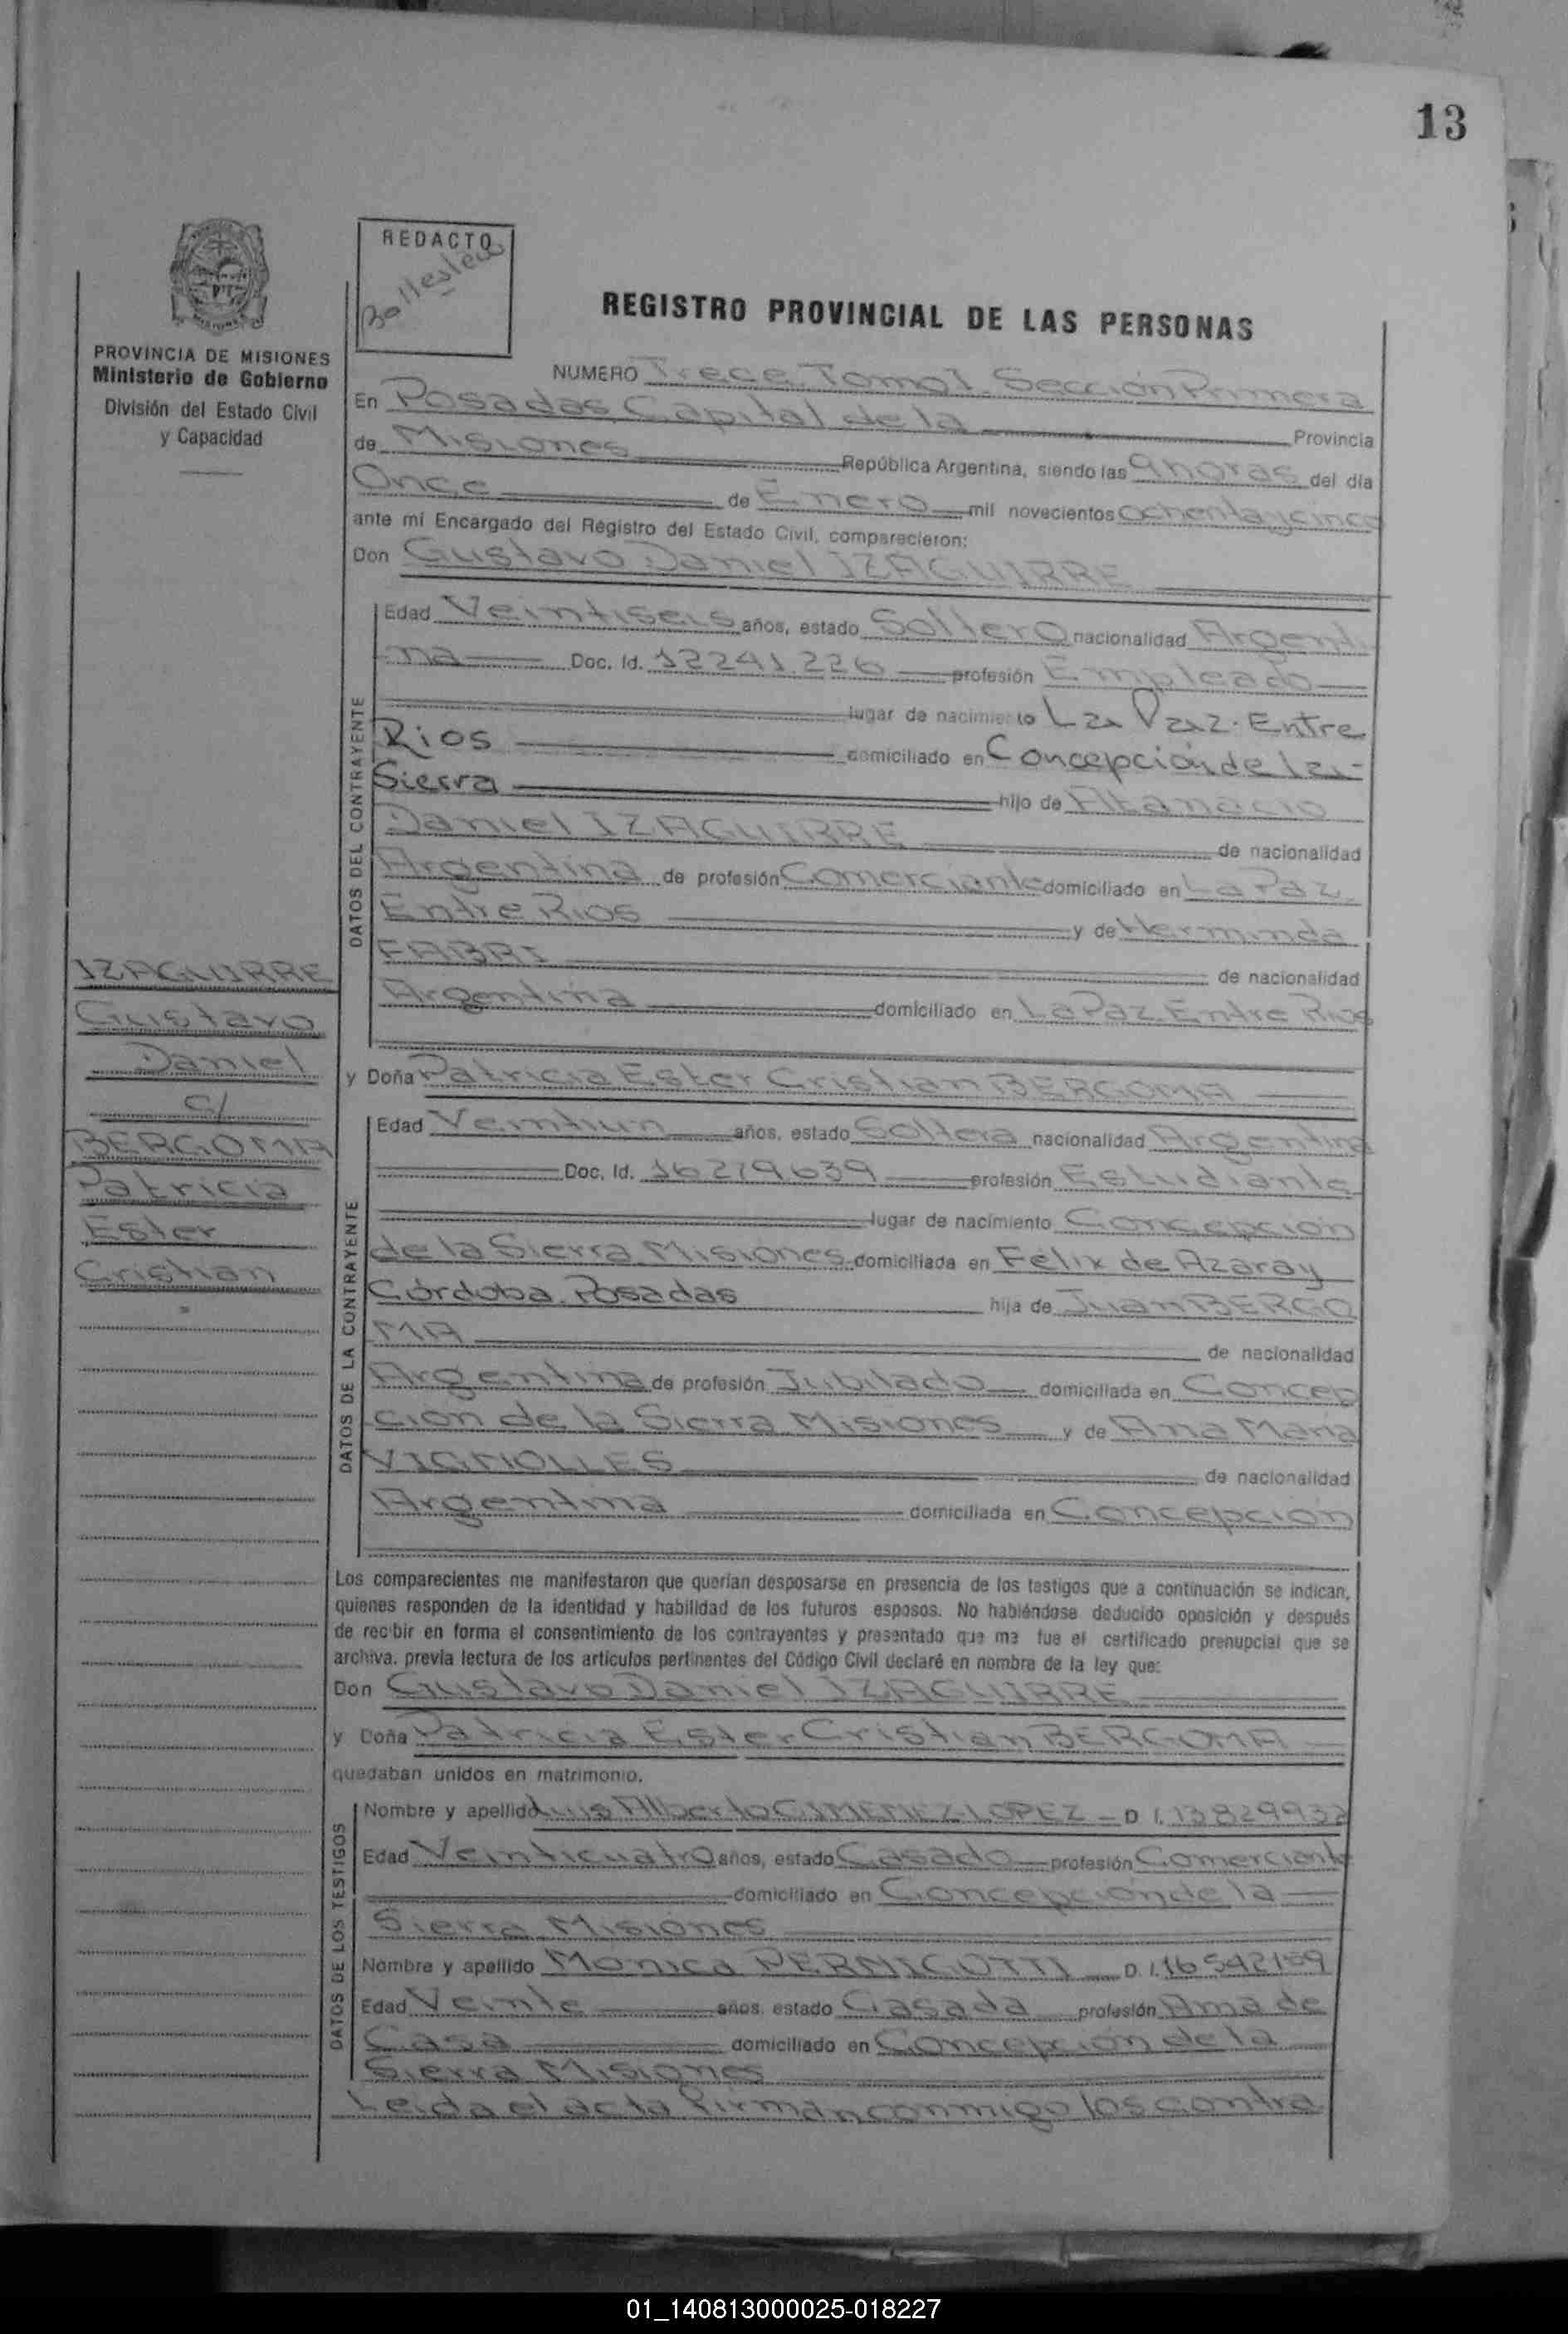 13
REDACTO
Ballesteros
PROVINCIA DE MISIONES
Ministerio de Gobierno
División del Estado Civil
y Capacidad
REGISTRO PROVINCIAL DE LAS PERSONAS
NUMERO Trece Tomo I Sección Primera
En Posadas Capital de la Provincia
de Misiones República Argentina, siendo las 9 horas del día
Once de Enero mil novecientos ochenta y cinco
ante mi Encargado del Registro del Estado Civil, comparecieron:
Don Gustavo Daniel IZAGUIRRE
DATOS DEL CONTRAYENTE
Edad Veintiseis años, estado Soltero nacionalidad Argenti
na Doc. Id. 12241.226 profesión Empleado
lugar de nacimiento La Paz. Entre
Rios domiciliado en Concepción de la
Sierra hijo de Atanacio
Daniel IZAGUIRRE de nacionalidad
Argentina de profesión Comerciante domiciliado en La Paz.
Entre Rios y de Herminda
FABRI de nacionalidad
Argentina domiciliado en La Paz Entre Rios
IZAGUIRRE
Gustavo
Daniel
C/
BERGOMA
Patricia
Ester
Cristian
y Doña Patricia Ester Cristian BERGOMA
DATOS DE LA CONTRAYENTE
Edad Veintiun años, estado Soltera nacionalidad Argentina
Doc. Id. 16279639 profesión Estudiante
lugar de nacimiento Concepcion
de la Sierra Misiones domiciliada en Félix de Azara y
Córdoba. Posadas hija de Juan BERGO
MA de nacionalidad
Argentina de profesión Jubilado domiciliada en Concep
cion de la Sierra Misiones y de Ana Maria
VIGNOLLES de nacionalidad
Argentina domiciliada en Concepcion
Los comparecientes me manifestaron que querían desposarse en presencia de los testigos que a continuación se indican,
quienes responden de la identidad y habilidad de los futuros esposos. No habiéndose deducido oposición y después
de recibir en forma el consentimiento de los contrayentes y presentado que me fue el certificado prenupcial que se
archiva, previa lectura de los artículos pertinentes del Código Civil declaré en nombre de la ley que:
Don Gustavo Daniel IZAGUIRRE
y Doña Patricia Ester Cristian BERGOMA
quedaban unidos en matrimonio.
DATOS DE LOS TESTIGOS
Nombre y apellido Luis Alberto GIMENEZ LOPEZ D.I. 13829932
Edad Veinticuatro años, estado Casado profesión Comerciante
domiciliado en Concepcion de la
Sierra Misiones
Nombre y apellido Monica PERNIGOTTI D.I. 16542159
Edad Veinte años, estado Casada profesión Ama de
Casa domiciliado en Concepción de la
Sierra Misiones
Leida el acta firman conmigo los contra
01_140813000025-018227